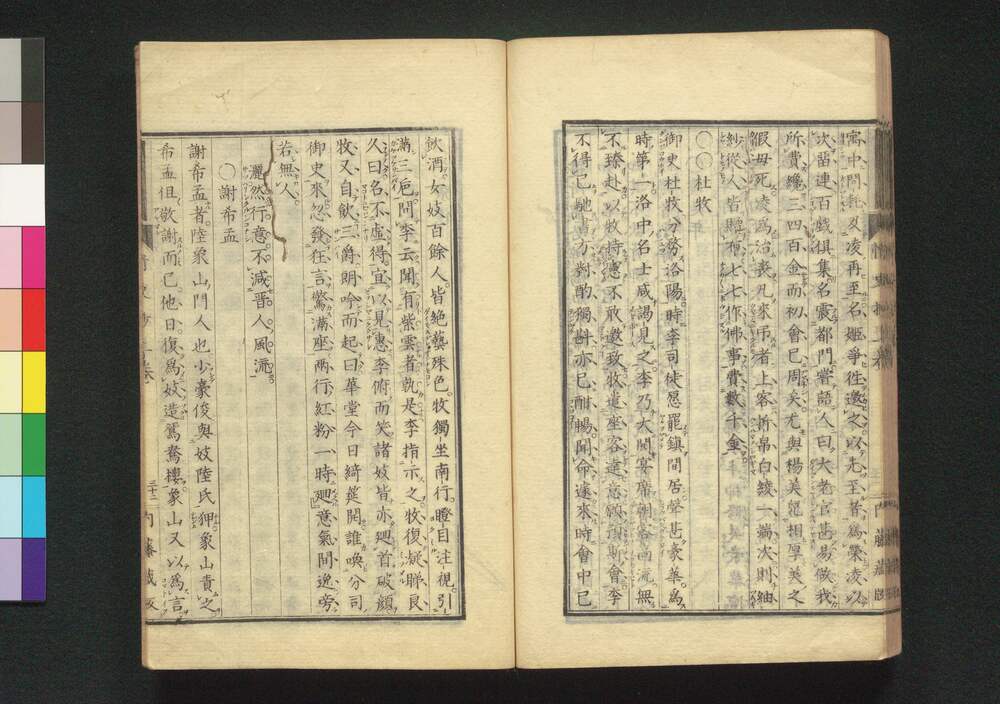 寓中聞訃又凌再至名姬爭徃邀之以先至者爲榮凌以
次留連百戲俱集名震都門嘗語人曰大老官甚易做我
所費纔三四百金而初會已周矣尤與楊美寵相厚美之
假母死凌爲治喪凡來弔者上客折帛白綾一端次則紬
紗從人皆贈布七七作佛事費數千金
〇〇杜牧
御史杜牧分務洛陽時李司徒愿罷鎮間居聲甚豪華爲
時第一洛中名士咸謁見之李乃大開宴席朝客高流無
不臻赴以牧持憲不敢邀致牧遣座客達意願預斯會李
不得已馳書方對酌獨斟亦已酣暢聞命遽來時會中已
飲酒女妓百餘人皆絶藝殊色牧獨坐南行瞪目注視引
滿三巵問李云聞有紫雲者孰是李指示之牧復凝睇良
久曰名不虛得宜以見惠李俯而笑諸妓皆亦廻首破顔
牧又自飲三爵朗吟而起曰華堂今日綺筵開誰喚分司
御史來忽發狂言驚滿座兩行紅粉一時廻意氣間逸旁
若無人
灑然行意不減晋人風流
〇謝希孟
謝希孟者陸象山門人也少豪俊與妓陸氏狎象山責之
希孟但敬謝而已他日復爲妓造鴛鴦樓象山又以爲言
三十二
内藤藏版